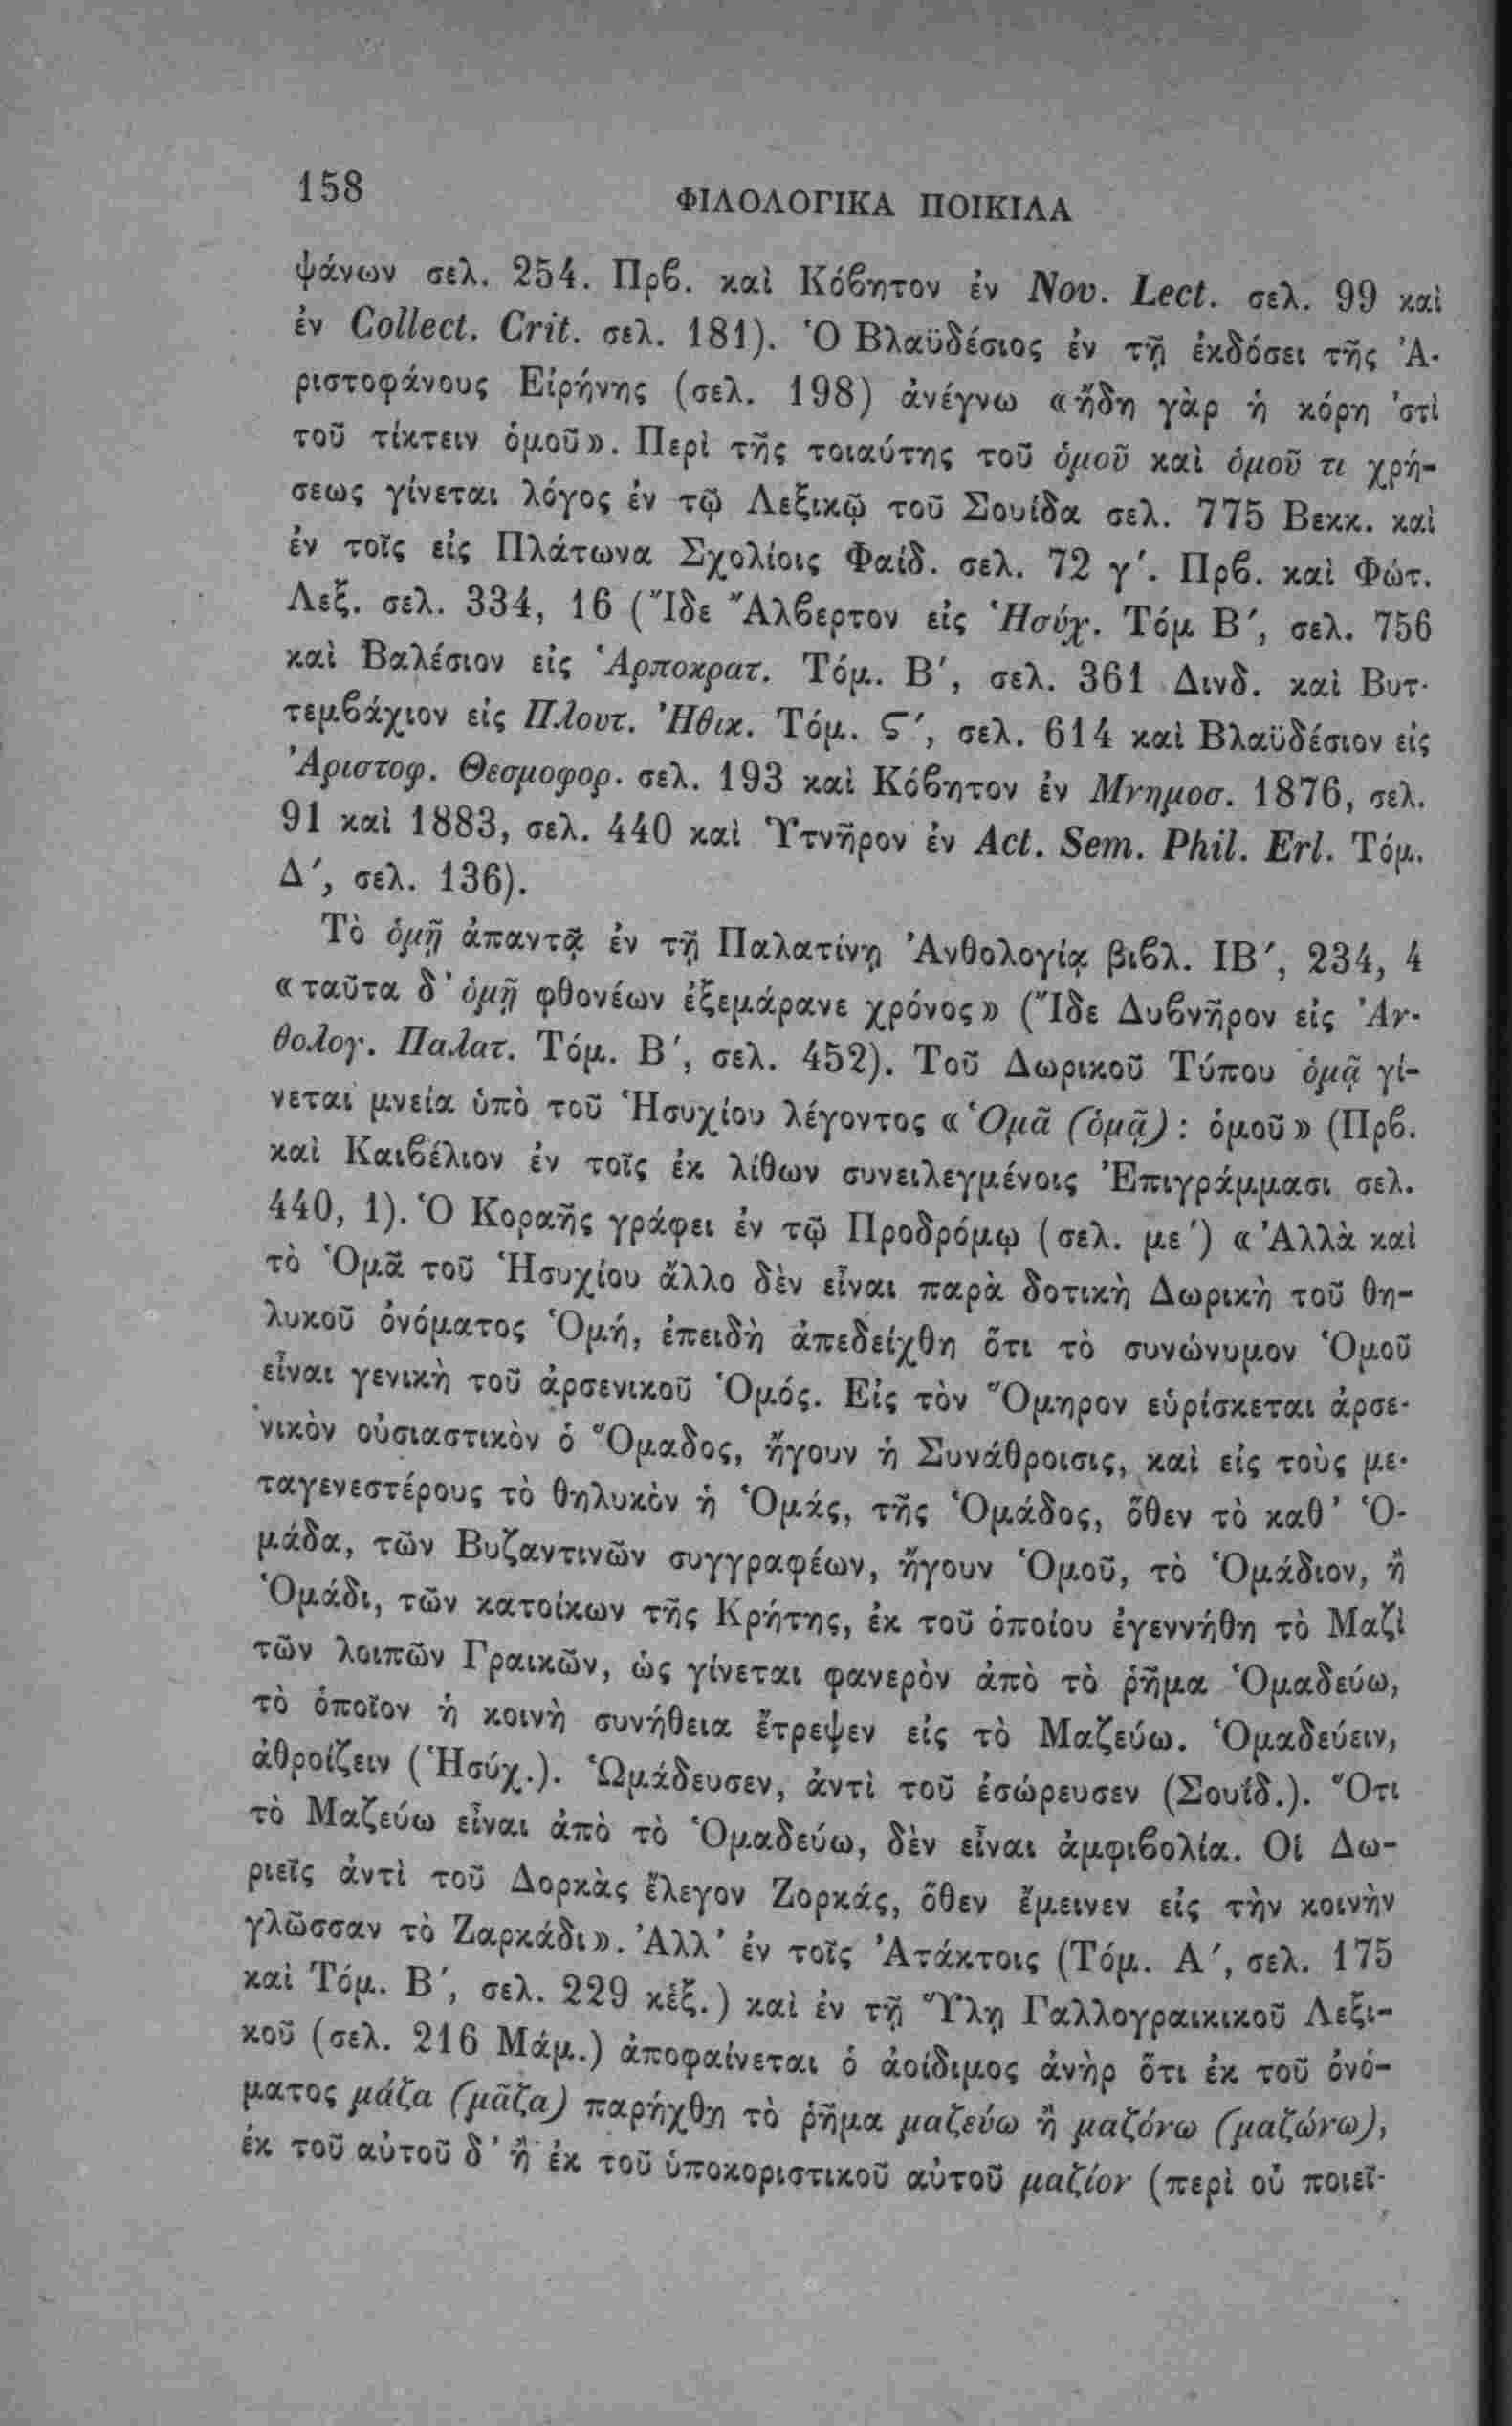 158
ΦΙΛΟΛΟΓΙΚΑ ΠΟΙΚΙΛΑ
ψάνων σελ. 254. Πρβ. καὶ Κόβητον ἐν Nov. Lect. σελ. 99 καὶ
ἐν Collect. Crit. σελ. 181). Ὁ Βλαϋδέσιος ἐν τῇ ἐκδόσει τῆς Ἀ-
ριστοφάνους Εἰρήνης (σελ. 198) ἀνέγνω «ἤδη γὰρ ἡ κόρη 'στὶ
τοῦ τίκτειν ὁμοῦ». Περὶ τῆς τοιαύτης τοῦ ὁμοῦ καὶ ὁμοῦ τι χρή-
σεως γίνεται λόγος ἐν τῷ Λεξικῷ τοῦ Σουίδα σελ. 775 Βεκκ. καὶ
ἐν τοῖς εἰς Πλάτωνα Σχολίοις Φαίδ. σελ. 72 γ΄. Πρβ. καὶ Φώτ.
Λεξ. σελ. 334, 16 (Ἴδε Ἄλβερτον εἰς Ἡσύχ. Τόμ Β΄, σελ. 756
καὶ Βαλέσιον εἰς Ἁρποκρατ. Τόμ. Β΄, σελ. 361 Δινδ. καὶ Βυτ-
τεμβάχιον εἰς Πλουτ. Ἠθικ. Τόμ. Ϛ΄, σελ. 614 καὶ Βλαϋδέσιον εἰς
Ἀριστοφ. Θεσμοφορ. σελ. 193 καὶ Κόβητον ἐν Μνημοσ. 1876, σελ.
91 καὶ 1883, σελ. 440 καὶ Ὑτνῆρον ἐν Act. Sem. Phil. Erl. Τόμ.
Δ΄, σελ. 136).
Τὸ ὁμῇ ἀπαντᾷ ἐν τῇ Παλατίνῃ Ἀνθολογίᾳ βιβλ. ΙΒ΄, 234, 4
«ταῦτα δ' ὁμῇ φθονέων ἐξεμάρανε χρόνος» (Ἴδε Δυβνῆρον εἰς Ἀν-
θολογ. Παλατ. Τόμ. Β΄, σελ. 452). Τοῦ Δωρικοῦ Τύπου ὁμᾷ γί-
νεται μνεία ὑπὸ τοῦ Ἡσυχίου λέγοντος «Ὁμᾶ (ὁμᾷ): ὁμοῦ» (Πρβ.
καὶ Καιβέλιον ἐν τοῖς ἐκ λίθων συνειλεγμένοις Ἐπιγράμμασι σελ.
440, 1). Ὁ Κοραῆς γράφει ἐν τῷ Προδρόμῳ (σελ. με΄) «Ἀλλὰ καὶ
τὸ Ὁμᾶ τοῦ Ἡσυχίου ἄλλο δὲν εἶναι παρὰ δοτικὴ Δωρικὴ τοῦ θη-
λυκοῦ ὀνόματος Ὁμή, ἐπειδὴ ἀπεδείχθη ὅτι τὸ συνώνυμον Ὁμοῦ
εἶναι γενικὴ τοῦ ἀρσενικοῦ Ὁμός. Εἰς τὸν Ὅμηρον εὑρίσκεται ἀρσε-
νικὸν οὐσιαστικὸν ὁ Ὅμαδος, ἤγουν ἡ Συνάθροισις, καὶ εἰς τοὺς με-
ταγενεστέρους τὸ θηλυκὸν ἡ Ὁμάς, τῆς Ὁμάδος, ὅθεν τὸ καθ' Ὁ-
μάδα, τῶν Βυζαντινῶν συγγραφέων, ἤγουν Ὁμοῦ, τὸ Ὁμάδιον, ἢ
Ὁμάδι, τῶν κατοίκων τῆς Κρήτης, ἐκ τοῦ ὁποίου ἐγεννήθη τὸ Μαζὶ
τῶν λοιπῶν Γραικῶν, ὡς γίνεται φανερὸν ἀπὸ τὸ ῥῆμα Ὁμαδεύω,
τὸ ὁποῖον ἡ κοινὴ συνήθεια ἔτρεψεν εἰς τὸ Μαζεύω. Ὁμαδεύειν,
ἀθροίζειν (Ἡσύχ.). Ὡμάδευσεν, ἀντὶ τοῦ ἐσώρευσεν (Σουΐδ.). Ὅτι
τὸ Μαζεύω εἶναι ἀπὸ τὸ Ὁμαδεύω, δὲν εἶναι ἀμφιβολία. Οἱ Δω-
ριεῖς ἀντὶ τοῦ Δορκὰς ἔλεγον Ζορκάς, ὅθεν ἔμεινεν εἰς τὴν κοινὴν
γλῶσσαν τὸ Ζαρκάδι». Ἀλλ' ἐν τοῖς Ἀτάκτοις (Τόμ. Α΄, σελ. 175
καὶ Τόμ. Β΄, σελ. 229 κἑξ.) καὶ ἐν τῇ Ὕλῃ Γαλλογραικικοῦ Λεξι-
κοῦ (σελ. 216 Μάμ.) ἀποφαίνεται ὁ ἀοίδιμος ἀνὴρ ὅτι ἐκ τοῦ ὀνό-
ματος μάζα (μᾶζα) παρήχθη τὸ ῥῆμα μαζεύω ἢ μαζόνω (μαζώνω),
ἐκ τοῦ αὐτοῦ δ' ἢ ἐκ τοῦ ὑποκοριστικοῦ αὐτοῦ μαζίον (περὶ οὗ ποιεῖ-